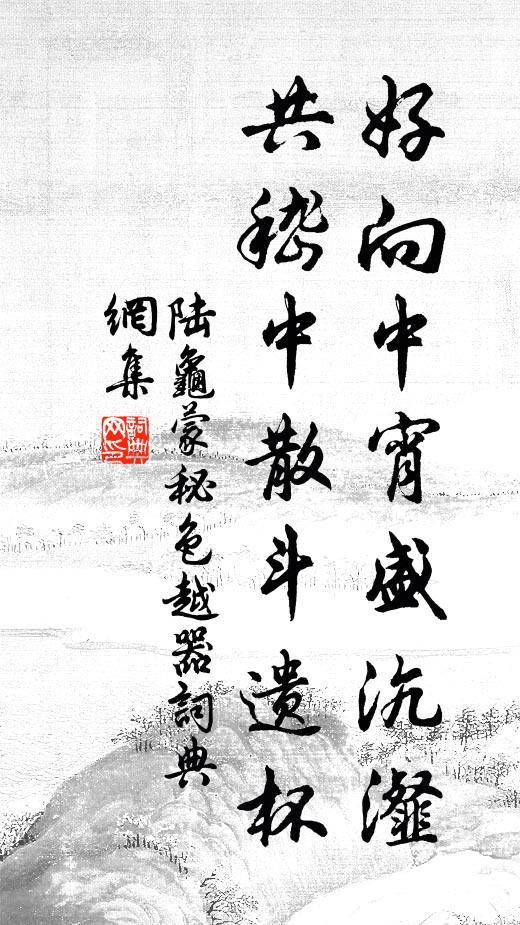 好向中宵盛沆瀣
共嵇中散斗遺杯
陸龜蒙秘色越器詞典
網集
詞典